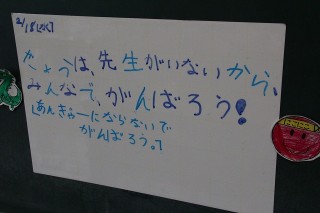 2/18(火)
きょうは、先生がいないから、
みんなで、がんばろう!
(あんきゅーにならないで
がんばろう。)